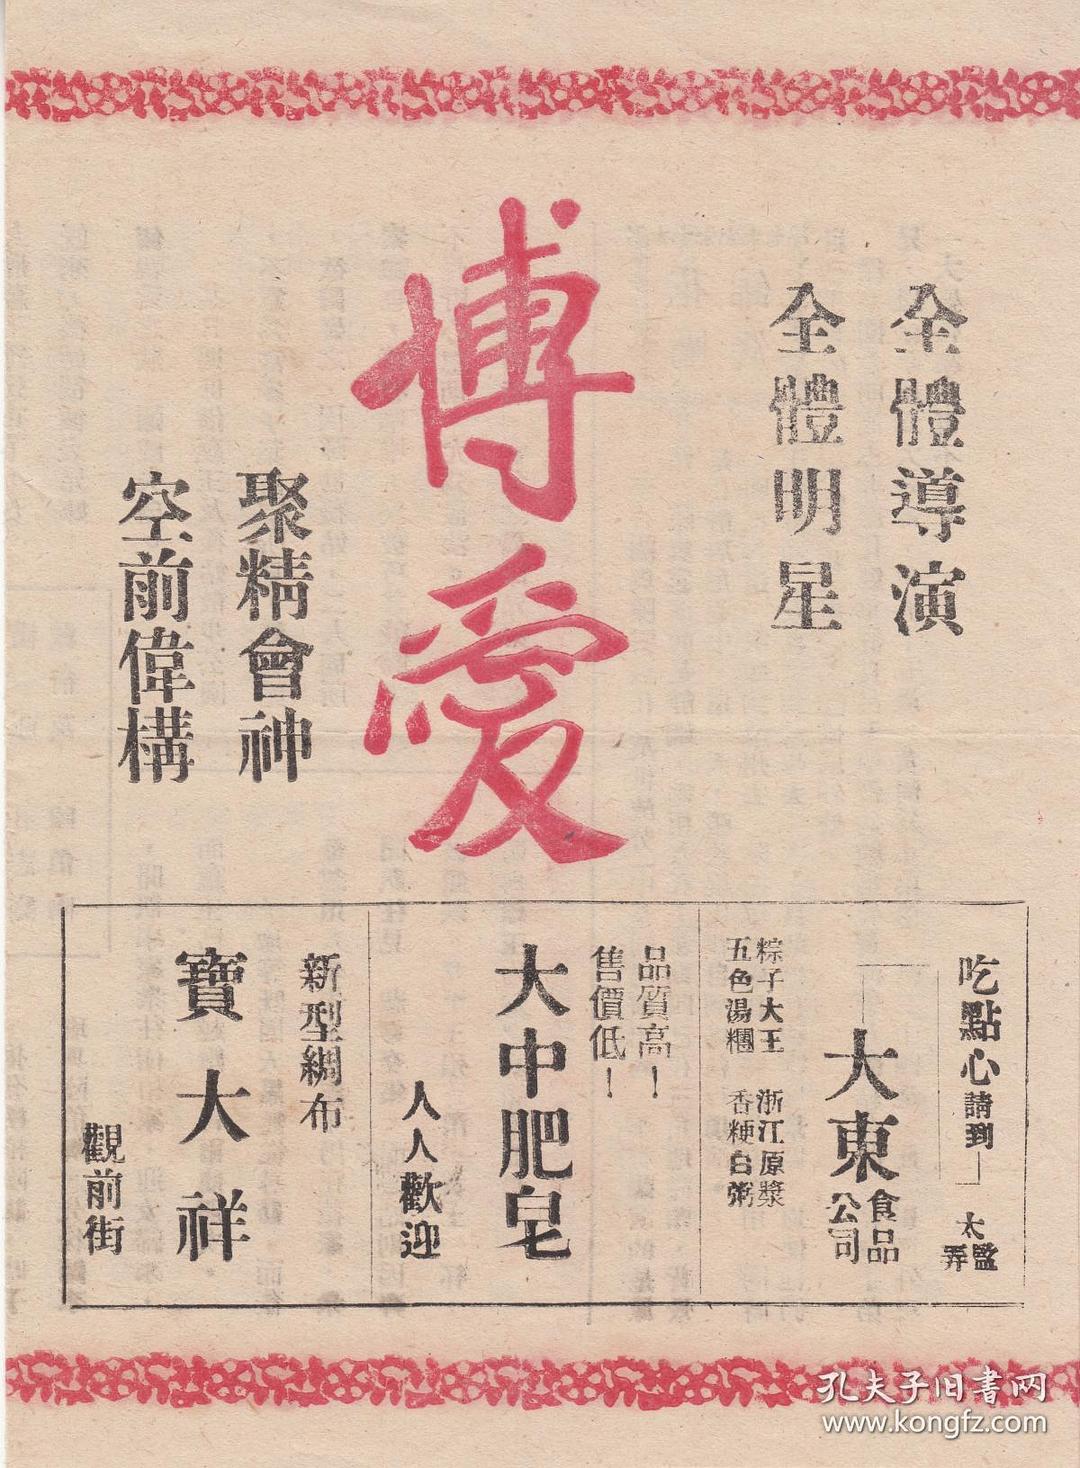 全體導演
全體明星
博愛
聚精會神
空前偉構
吃點心請到
太監弄
大東食品公司
粽子大王 浙江原漿
五色湯糰 香粳白粥
品質高！
售價低！
大中肥皂
人人歡迎
新型綢布
寶大祥
觀前街
孔夫子旧书网
www.kongfz.com